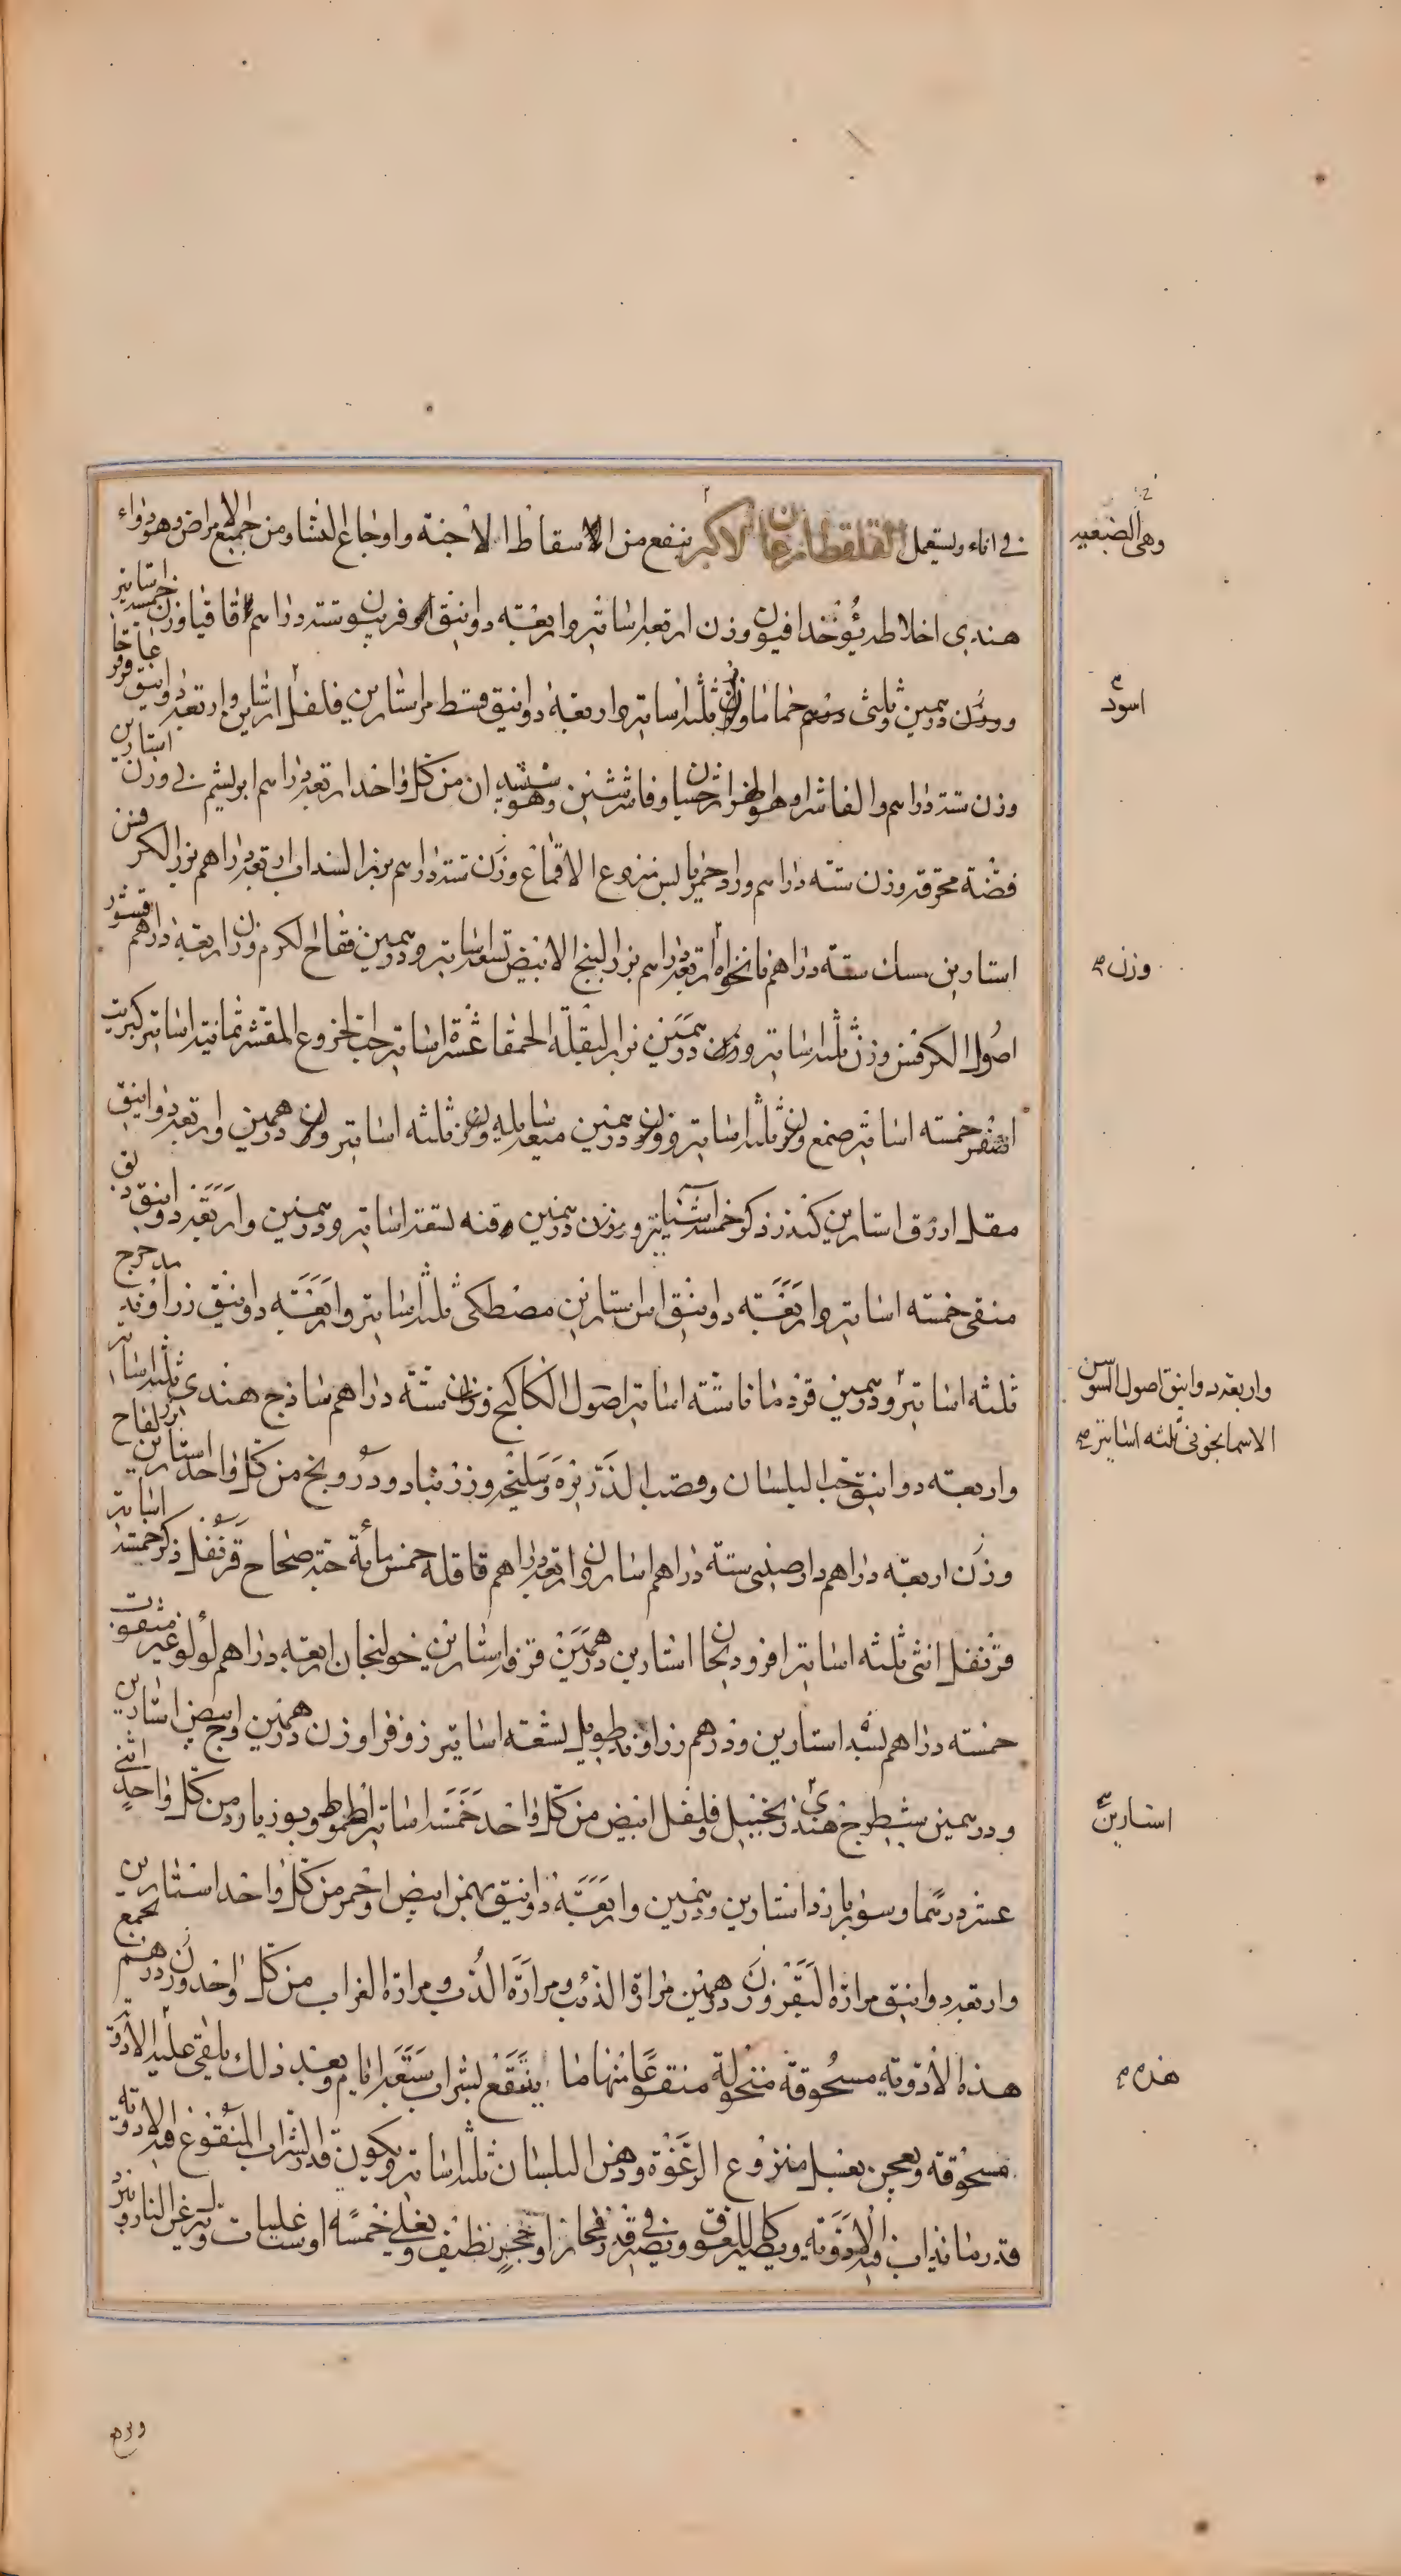 في اناء ويستعمل القلقطارغان الاكبر ينفع من الاسقاط الاجنة واوجاع النساء ومن جميع الامراض وهو دواء
هندي اخلاطه يؤخذ افيون وزن اربعة اساتير واربعة دوانيق فربيون ستة دراهم اقاقيا وزن خمسة اساتير عاقر قرحا
ووزن درهمين وثلثى درهم حماما وزن ثلثة اساتير واربعة دوانيق قسط مر استارين فلفل استارين واربعة دوانيق
وزن ستة دراهم والفاشرا وهو هزارجسان وفاشرشتين وهو ششبندان من كل واحد اربعة دراهم ابريشم ني وزن استارين
فضة محرقة وزن ستة دراهم ورد احمر يابس منزوع الاقماع وزن ستة دراهم بزر السنداب اربعة دراهم بزر الكرفس
استارين مسك ستة دراهم نانخواه اربعة دراهم بزر البنج الابيض تسعة اساتير ودرهمين فقاح الكرم وزن اربعة دراهم قشور
اصول الكرفس وزن ثلثة اساتير ووزن درهمين بزر البقلة الحمقا عشرة اساتير حب الخروع المقشر ثمانية اساتير كبريت
اصفر خمسة اساتير صمغ وزن ثلثة اساتير ووزن درهمين ميعة سايلة وزن ثلثه اساتير وزن درهمين واربعة دوانيق
مقل ازرق استارين كندر ذكر خمسة اساتير ووزن درهمين قنه تسعة اساتير ودرهمين واربعة دوانيق دبق
منقى خمسه اساتير واربعه دوانيق استارين مصطكى ثلثة اساتير واربعه دوانيق زراوند مدحرج
ثلثه اساتير ودرهمين قردمانا ستة اساتير اصول الكاكنج وزن ستة دراهم ساذج هندي ثلثة اساتير
واربعه دوانيق حب البلسان وقصب الذريرة وسليخه وزرنباد ودرونج من كل واحد استارين بزر لفاح
وزن اربعة دراهم دارصيني ستة دراهم اسارون اربعة دراهم قاقلة خمس مائة حبة صحاح قرنفل ذكر خمسة اساتير
قرنفل انثى ثلثه اساتير استارين درهمين قرفة استارين خولنجان اربعة دراهم لؤلؤ غير مثقوب
خمسه دراهم بسد استارين ودرهم زراوند طويل تسعة اساتير زوفرا وزن درهمين اوج ابيض استارين
ودرهمين شيطرج هندي زنجبيل وفلفل ابيض من كل واحد خمسة اساتير وبوزيدان من كل واحد اثني
عشر درهما استارين ودرهمين واربعة دوانيق بهمن ابيض واحمر من كل واحد استارين
واربعه دوانيق مرارة البقر وزن درهمين مرارة الذئب ومرارة الدب ومرارة الغراب من كل واحد وزن درهم يجمع
هذه الادويه مسحوقة منخولة منقوعا منها ما ينقع بشراب سبعة ايام وبعد ذلك يلقى عليه الادوية
مسحوقه ويعجن بعسل منزوع الرغوة ودهن البلسان ثلثة اساتير ويكون قدر الشراب المنقوع فيه الادوية
قدر ما يذاب فيه الادوية ويصير في قدر فخار او حجر نظيف ويغلى خمسا او ست غليات وينزل عن النار ويبرد
وهى الضبعيه
اسود
وزن
واربعة دوانيق اصول السوسن
الاسمانجوني ثلثه اساتير
استارين
هذه